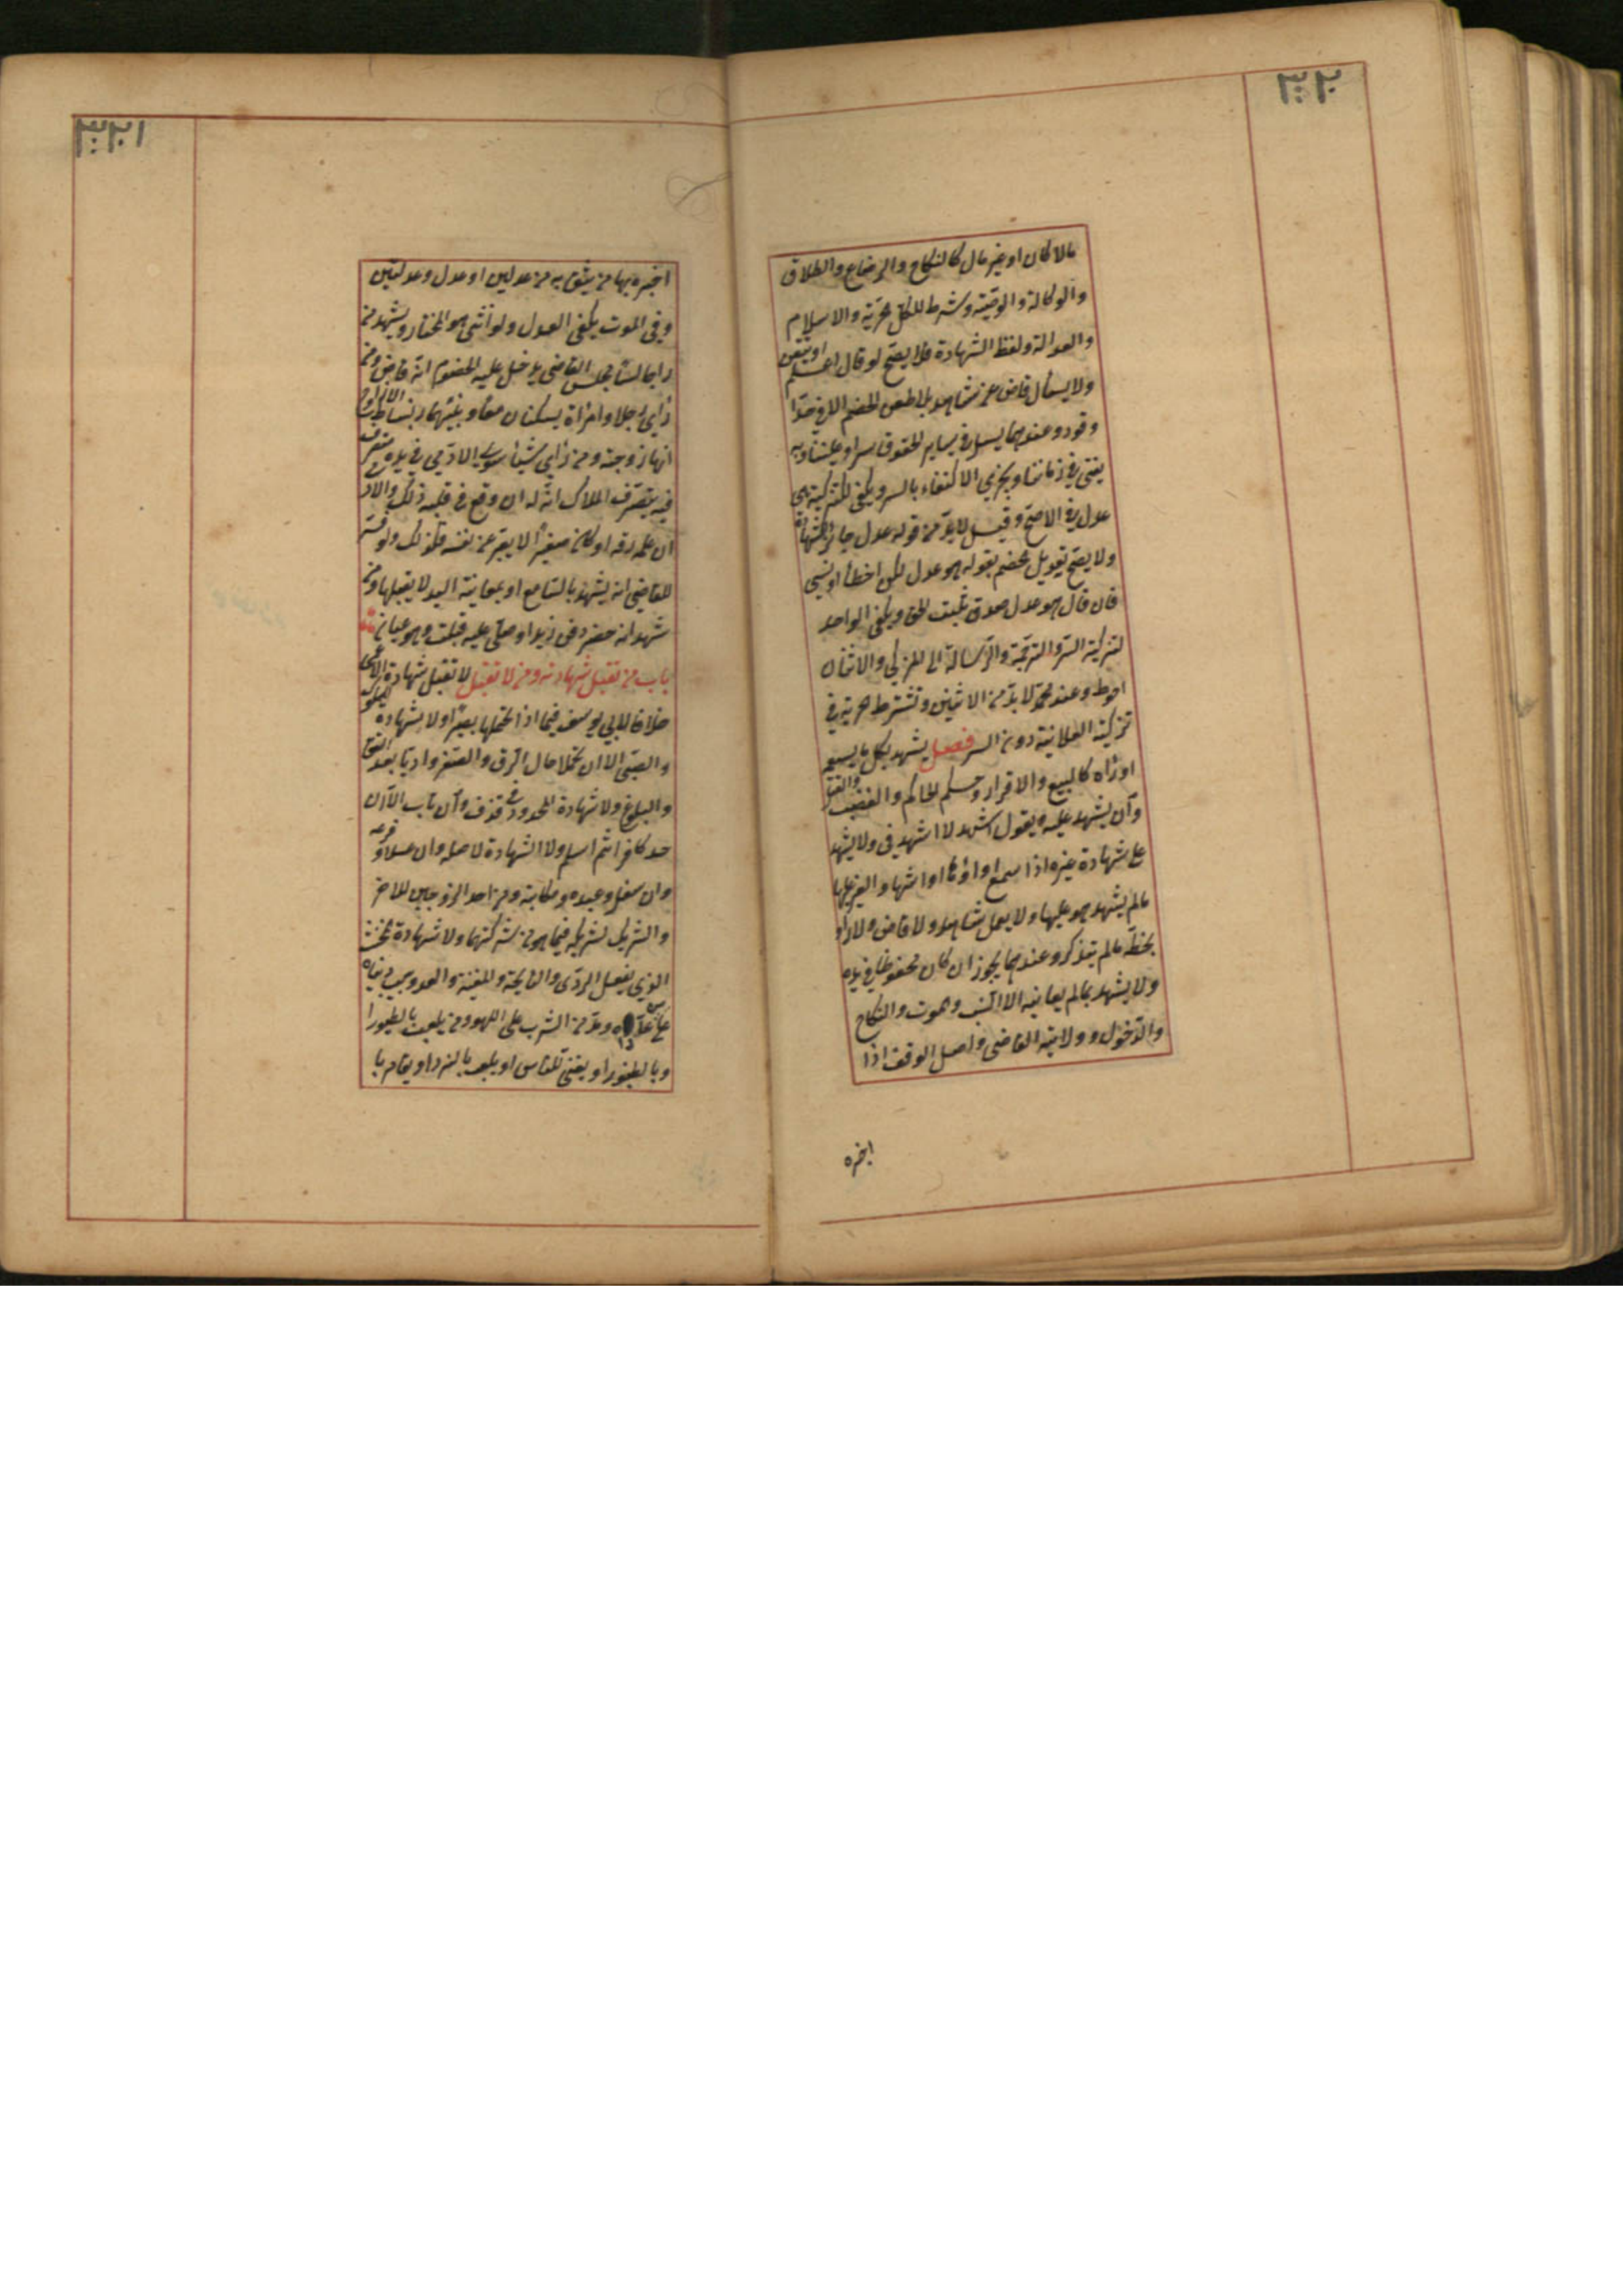 ٣٢٠
مالا كان او غير مال كالنكاح والرضاع والطلاق
والوكالة والوصية وشرط للكل حرية والاسلام
والعدالة ولفظ الشهادة فلا يصح لو قال اعلم او تيقن
ولا يسأل قاض عن شاهد بلا طعن الخصم الا في حد
وقود وعندهما يسأل في ساير الحقوق سرا وعلنا وبه
يفتى في زماننا ويجزي الاكتفاء بالسر ويكفي للتزكية هو
عدل في الاصح وقيل لا بد من قوله عدل جائز الشهادة
ولا يصح تعديل الخصم بقوله هو عدل لكن اخطأ او نسي
فان قال هو عدل صدق ثبت الحق ويكفي الواحد
لتزكية السر والترجمة والرسالة الى المزكي والاثنان
احوط وعند محمد لا بد من الاثنين وتشترط حرية في
تزكية العلانية دون السر فصل يشهد بكل ما يسمع
او رآه كالبيع والاقرار وحكم الحاكم والغصب والقتل
وان لم يشهد عليه ويقول اشهد لا اشهدني ولا يشهد
على شهادة غيره اذا سمع اداؤها او اشهاد الغير عليها
مالم يشهد هو عليها ولا يعمل شاهد ولا قاض ولا راو
بخطه مالم يتذكر وعندهما يجوز ان كان محفوظا في يده
ولا يشهد بمالم يعاينه الا النسب والموت والنكاح
والدخول وولاية القاضي واصل الوقف اذا
اخبره
٣٢١
اخبره بها من يثق به من عدلين او عدل وعدلتين
وفي الموت يكفي العدل ولو انثى هو المختار ويشهد من
راى جالسا مجلس القاضي يدخل عليه الخصوم انه قاض ومن
رأى رجلا وامرأة يسكنان معا وبينهما انبساط الازواج
انها زوجته ومن رأى شيئا سوى الادمي في يد متصرف
فيه تصرف الملاك انه له ان وقع في قلبه ذلك والادمي
ان علم رقه او كان صغيرا لا يعبر عن نفسه فكذلك ولو فسر
للقاضي انه يشهد بالتسامع او بمعاينة اليد لا يقبلها ومن
شهد انه حضر دفن زيد او صلى عليه قبلت وهو عيان
باب من تقبل شهادته ومن لا تقبل لا تقبل شهادة الاعمى
خلافا لابي يوسف فيما اذا تحملها بصيرا ولا شهادة المملوك
والصبي الا ان تحملا حال الرق والصغر واديا بعد العتق
والبلوغ ولا شهادة المحدود في قذف وان تاب الا ان
حد كافرا ثم اسلم ولا الشهادة لاصله وان علا وفرعه
وان سفل وعبده ومكاتبه ومن احد الزوجين للاخر
والشريك لشريكه فيما هو من شركتهما ولا شهادة المخنث
الذي يفعل الردى والنايحة والمغنية والعدو بسبب دنياه
على عدوه ومدمن الشرب على اللهو ومن يلعب بالطيور
وبالطنبور او يغني للناس او يلعب بالنرد او يقامر با